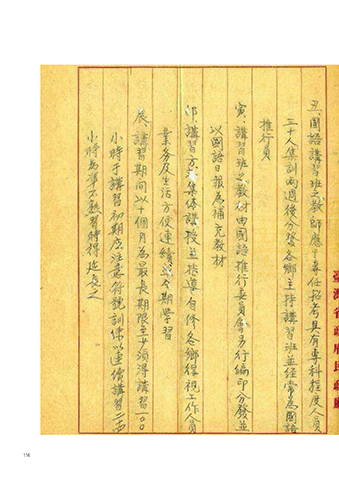 丑、國語講習班之教師應予專任招考具有專科程度人員
三十人集訓兩週後分發各鄉主持講習班並經常為國語
推行員
寅、講習班之教材由國語推行委員會另行編印分發並
以國語日報為補充教材
卯、講習方式集体講授並指導自修各鄉得視工作人員
業務及生活方便連續或分期學習
辰、講習期間以十個月為最長期限至少須得講習一〇〇
小時于講習初期應注意符號訓練以連續講習二十四
小時為準不熟習時得延長之
臺灣省政府民政廳
116